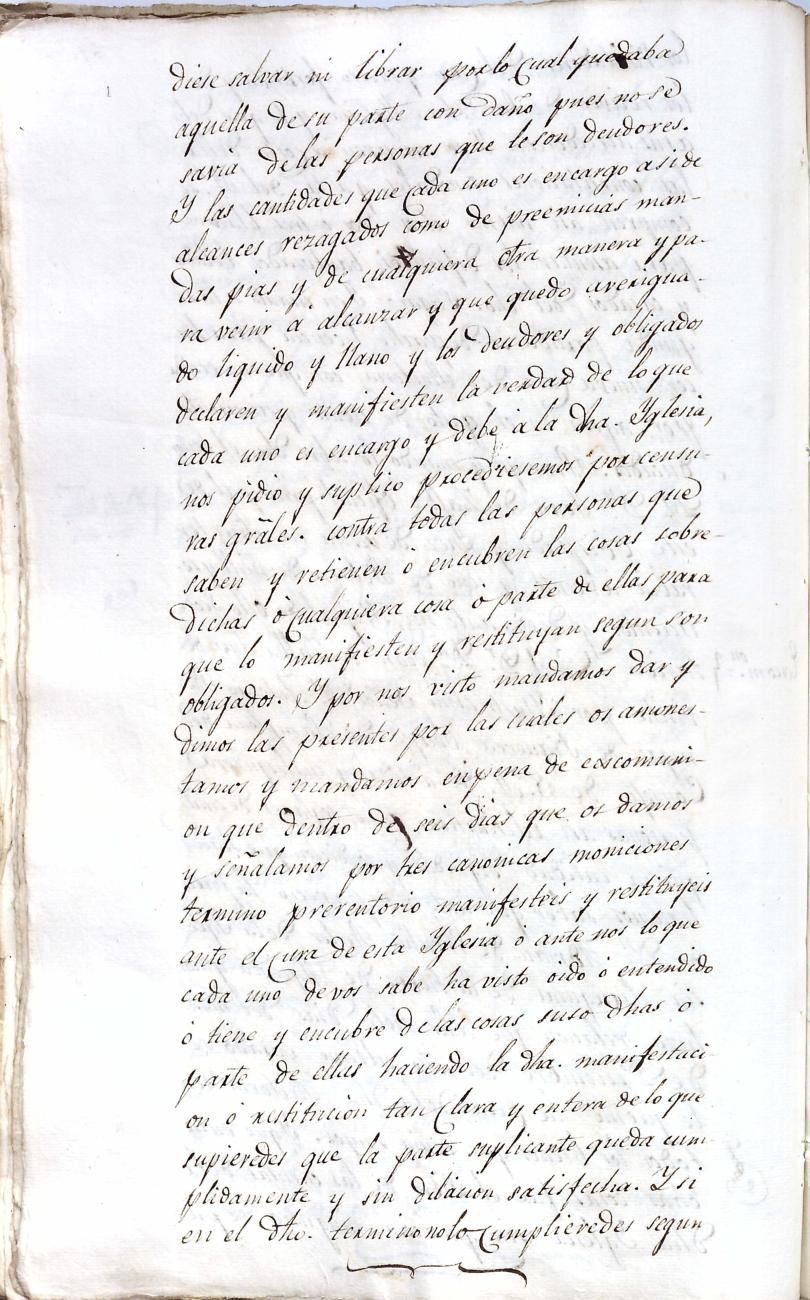 diese salvar ni librar por lo cual quedaba
aquella de su parte con daño pues no se
savia de las personas que le son deudores.
Y las cantidades que cada uno es encargo asi de
alcances rezagados como de preemicias man-
das pias y de cualquiera otra manera y pa-
ra venir á alcanzar y que quedo averigua-
do liquido y llano y los deudores y obligados
declaren y manifiesten la verdad de lo que
cada uno es encargo y debe á la dha. Yglesia,
nos pidio y suplico procediesemos por censu-
ras gráles. contra todas las personas que
saben y retienen ó encubren las cosas sobre-
dichas ó cualquiera cosa ó parte de ellas para
que lo manifiesten y restituyan segun son
obligados. Y por nos visto mandamos dar y
dimos las presentes por las cuales os amones-
tamos y mandamos en pena de excomuni-
on que dentro de seis dias que os damos
y señalamos por tres canonicas moniciones
termino prerentorio manifesteis y restituyeis
ante el cura de esta Yglesia ó ante nos lo que
cada uno de vos sabe ha visto oido ó entendido
ó tiene y encubre de las cosas suso dhas ó
parte de ellas haciendo la dha. manifestaci-
on ó restitucion tan clara y entera de lo que
supieredes que la parte suplicante queda cum-
plidamente y sin dilacion satisfecha. Y si
en el dho. termino no lo cumplieredes segun